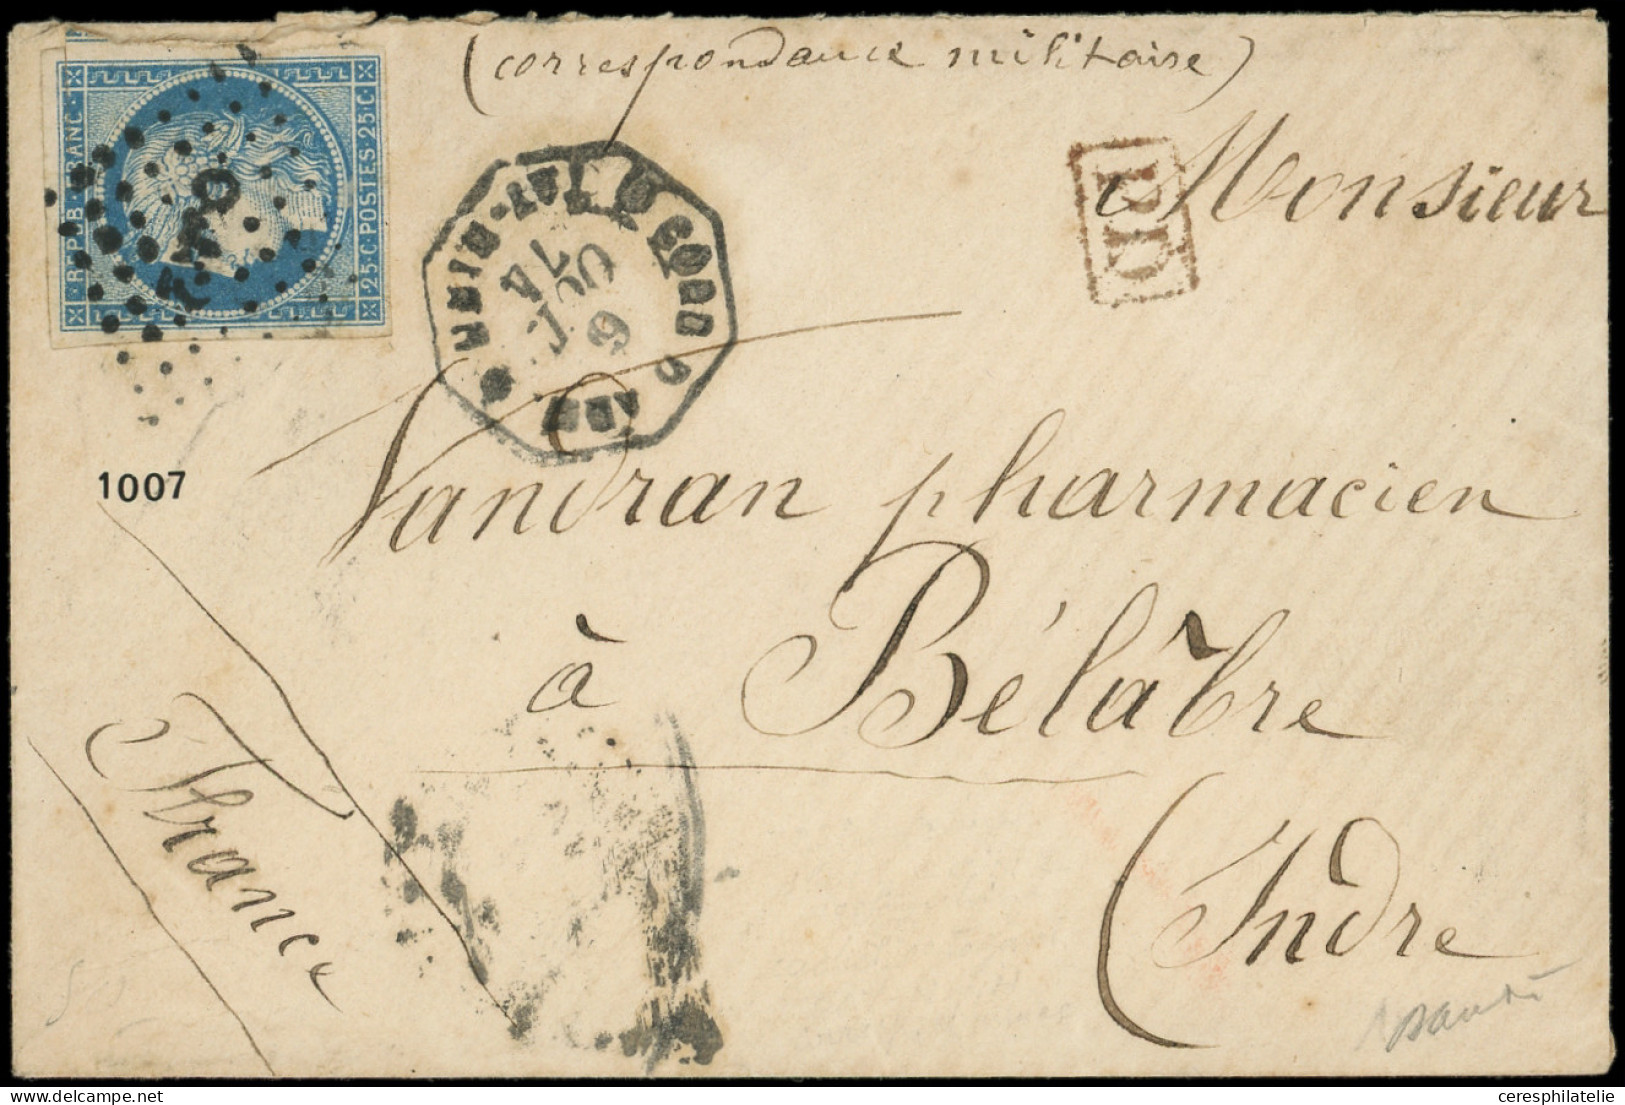 (correspondance militaire)
REPUB·FRANC·
25·C·POSTES·25·C·
PD
6
OCT
74
a Monsieur
1007
Vandran pharmacien
à Bélâbre
(Indre
France
ceresphilatelie.com